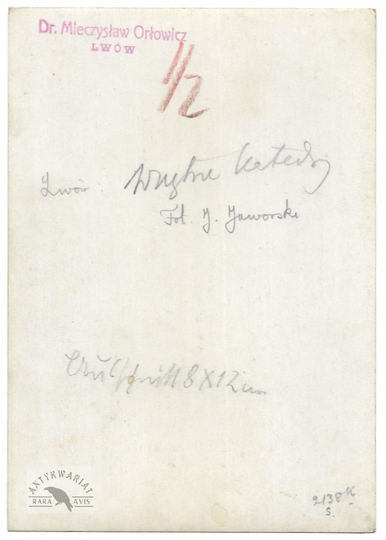 Dr. Mieczysław Orłowicz
LWÓW
1/2
Lwów: Wnętrze Katedry
Fot. J. Jaworski
8 X 12 cm
ANTYKWARIAT
RARA AVIS
2138 16
S.